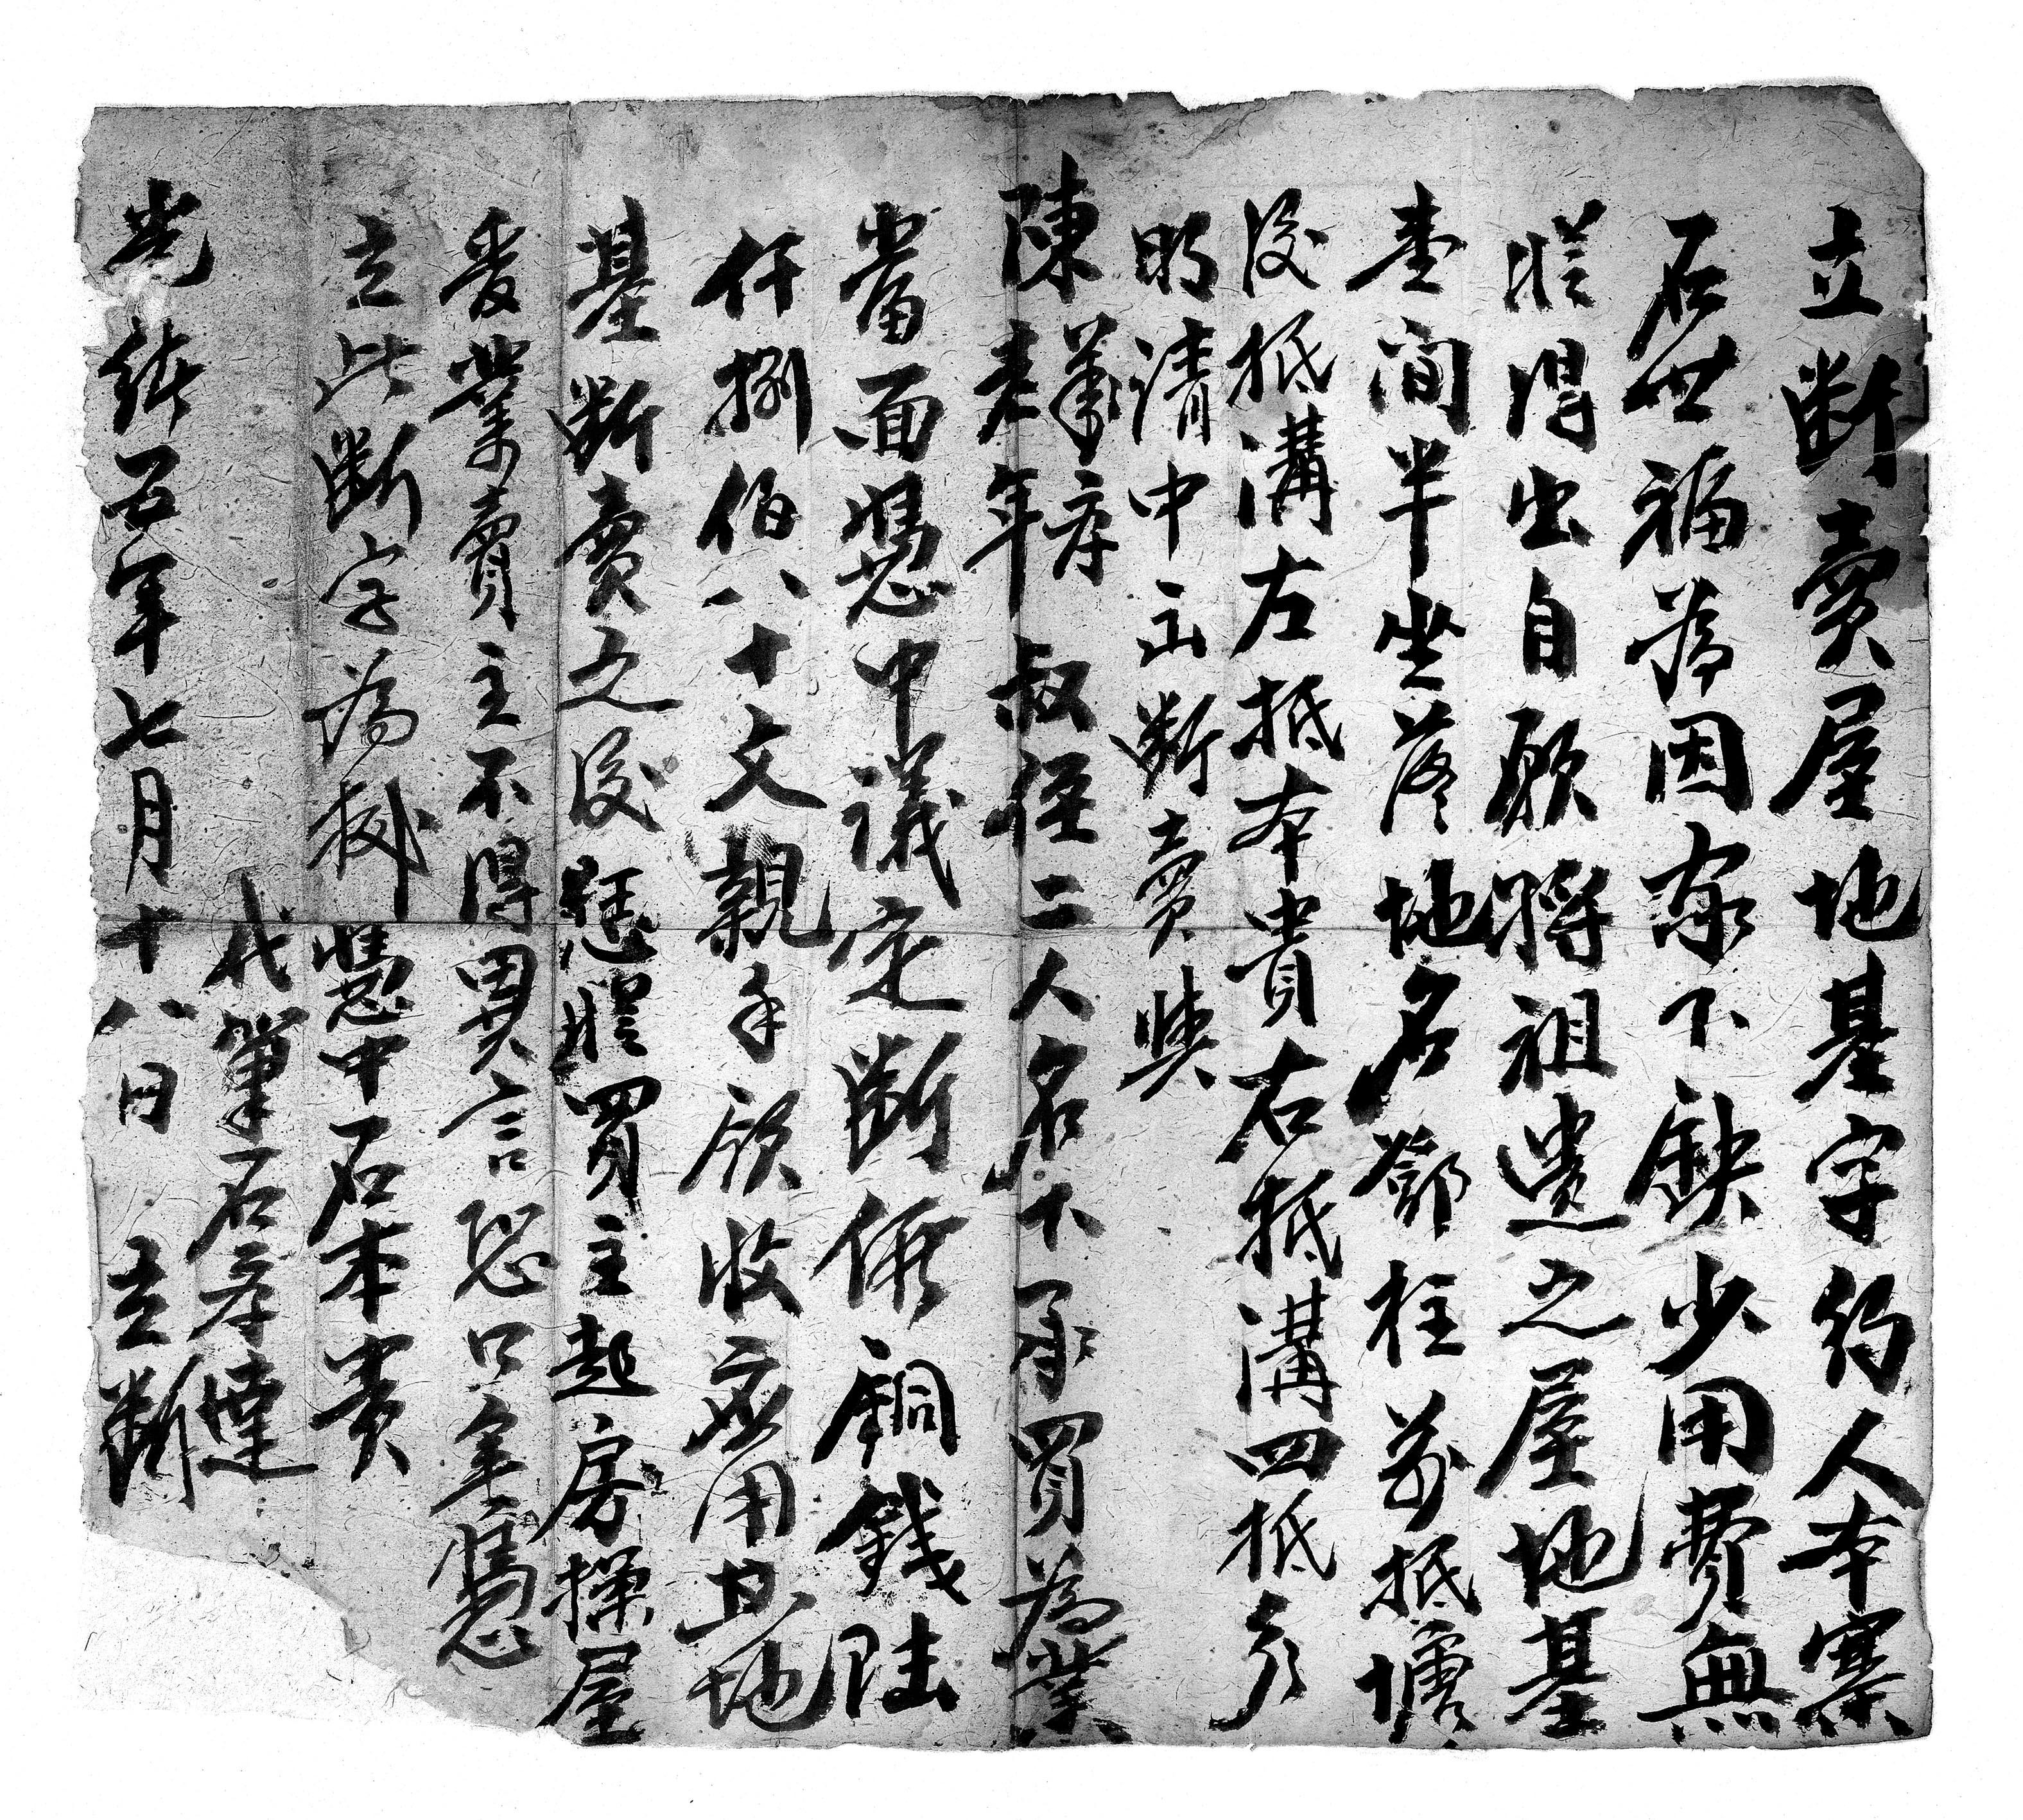 立断賣屋地基字約人本寨
石世福為因家下缺少用費無
從得出自願將祖遗之屋地基
壹间半坐落地名鄧柱前抵塘
後抵溝左抵本貴右抵溝四抵分
明请中立断賣與
陳 老年 叔侄二人名下承買為業
當面憑中議定断價銅錢陆
仟捌伯八十文親手领收应用其地
基断賣之後恁從買主起房操屋
受業賣主不得異言恐口無憑
立此断字為據 憑中石本貴
代筆石孝達
光緒五年七月十八日 立断